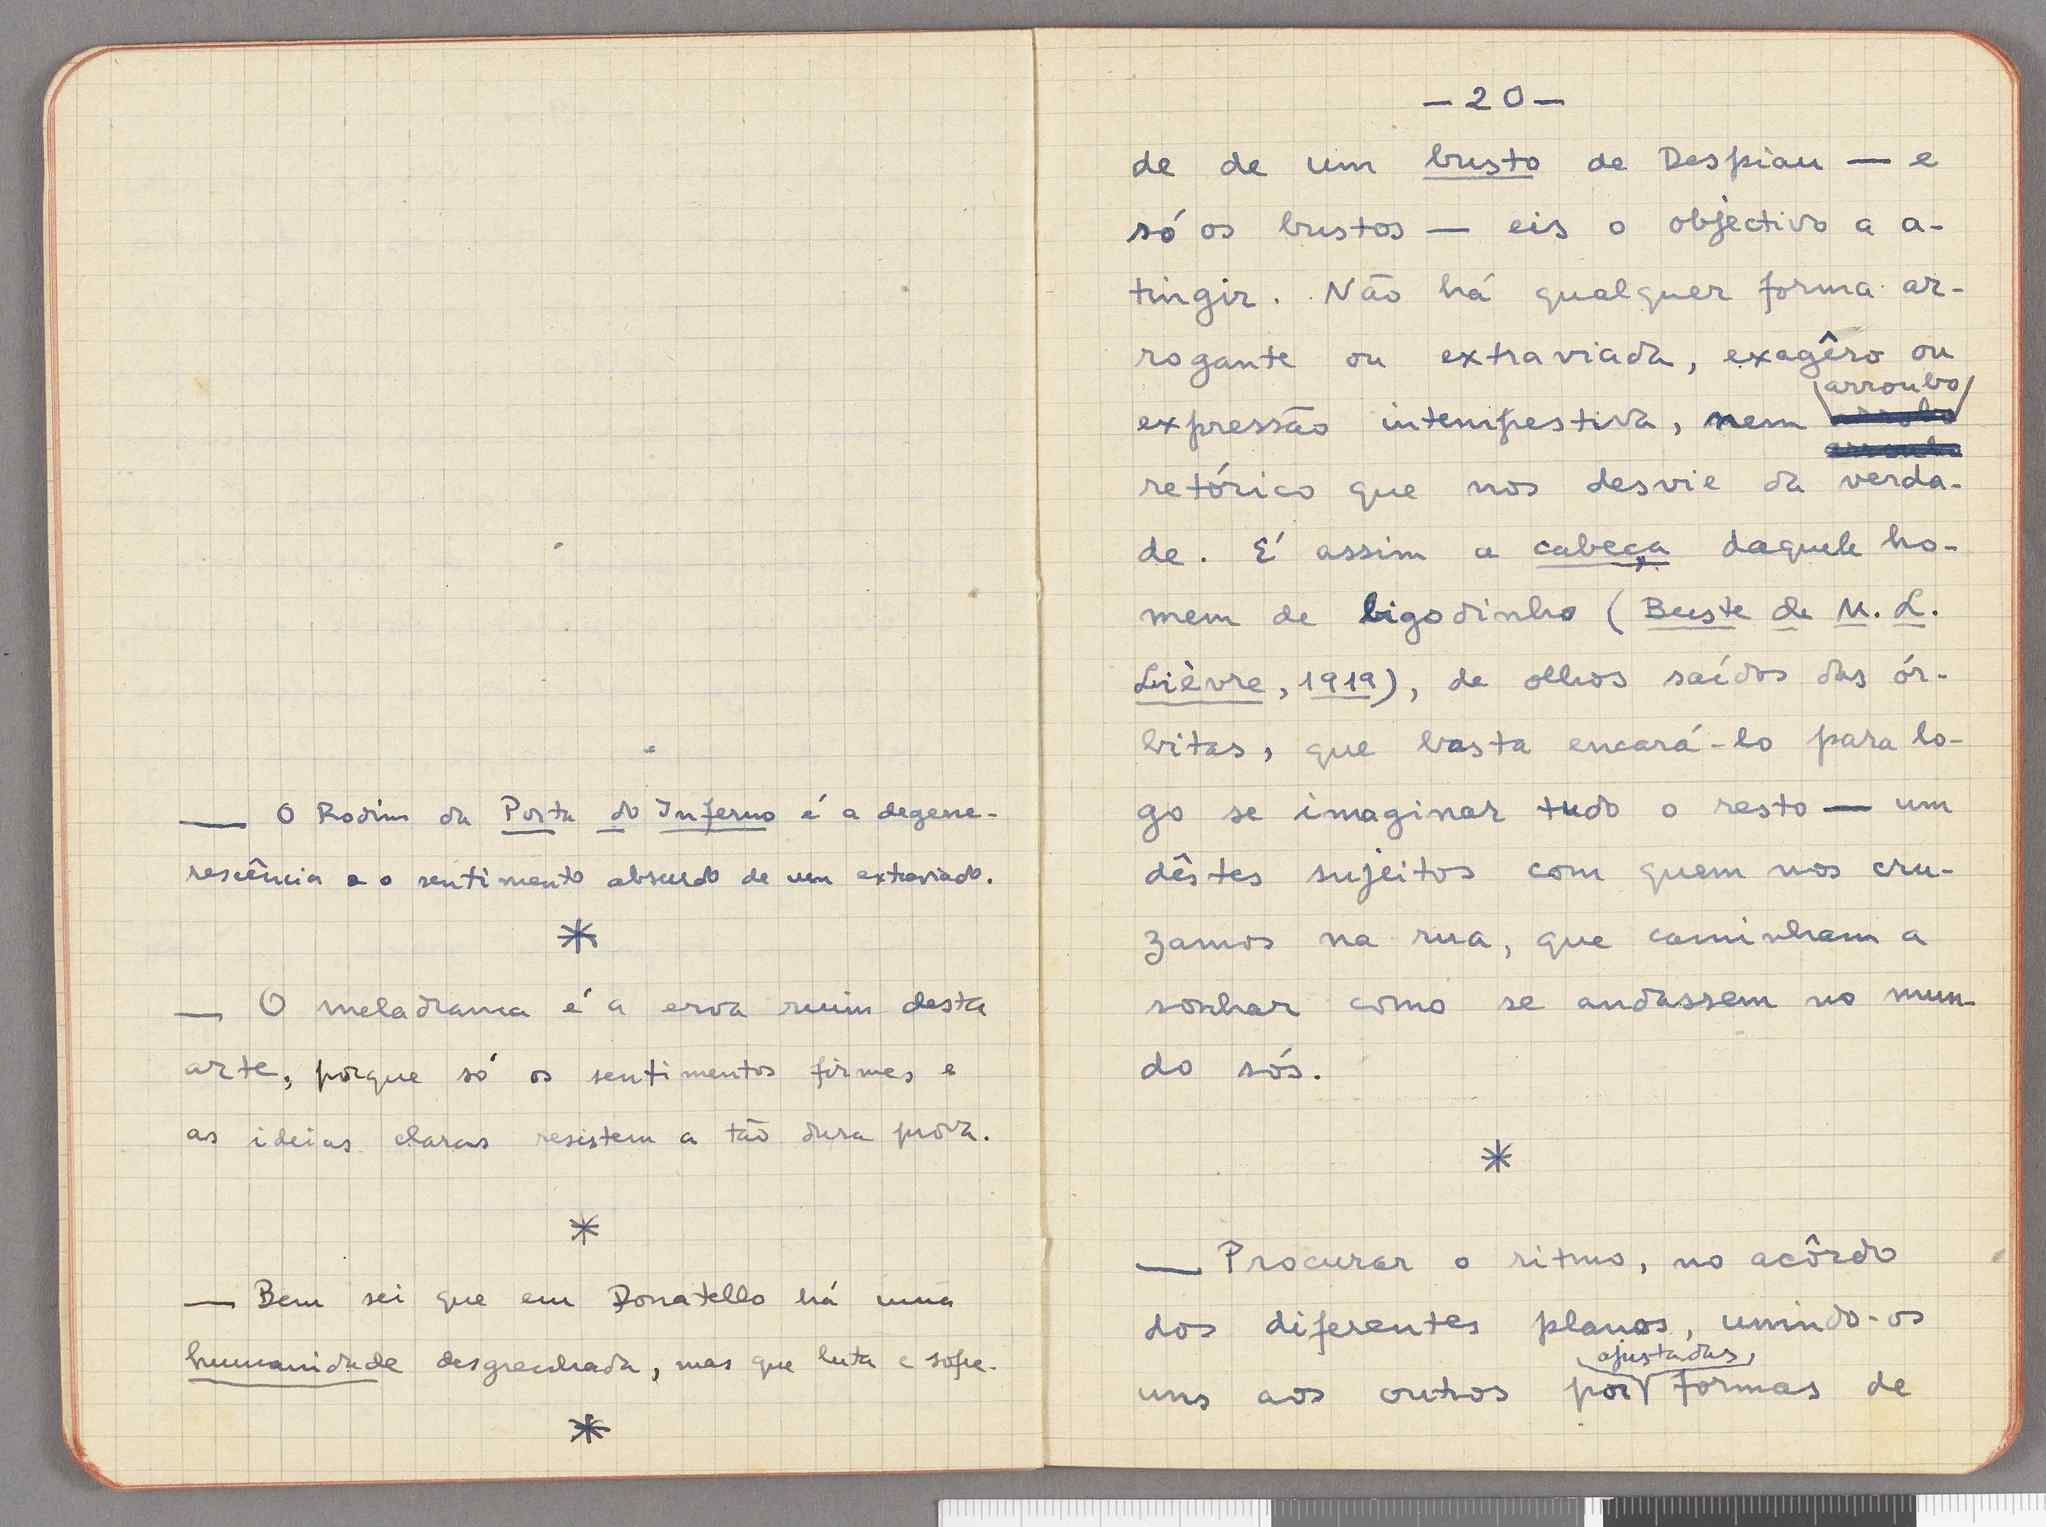 — O Rodin da Porta do Inferno é a degene-
rescência e o sentimento absurdo de um extraviado.
*
— O meladrama é a erva ruim desta
arte, porque só os sentimentos firmes e
as ideias claras resistem a tão dura prova.
*
— Bem sei que em Donatello há uma
humanidade desgrenhada, mas que luta e sofre.
*
— 20 —
de de um busto de Despiau — e
só os bustos — eis o objectivo a a-
tingir. Não há qualquer forma ar-
rogante ou extraviada, exagêro ou
arroubo
expressão intempestiva, nem
retórico que nos desvie da verda-
de. É assim a cabeça daquele ho-
mem de bigodinho (Buste de M. L.
Lièvre, 1919), de olhos saídos das ór-
bitas, que basta encará-lo para lo-
go se imaginar tudo o resto — um
dêstes sujeitos com quem nos cru-
zamos na rua, que caminham a
sonhar como se andassem no mun-
do sós.
*
— Procurar o ritmo, no acôrdo
dos diferentes planos, unindo-os
ajustadas,
uns aos outros por formas de